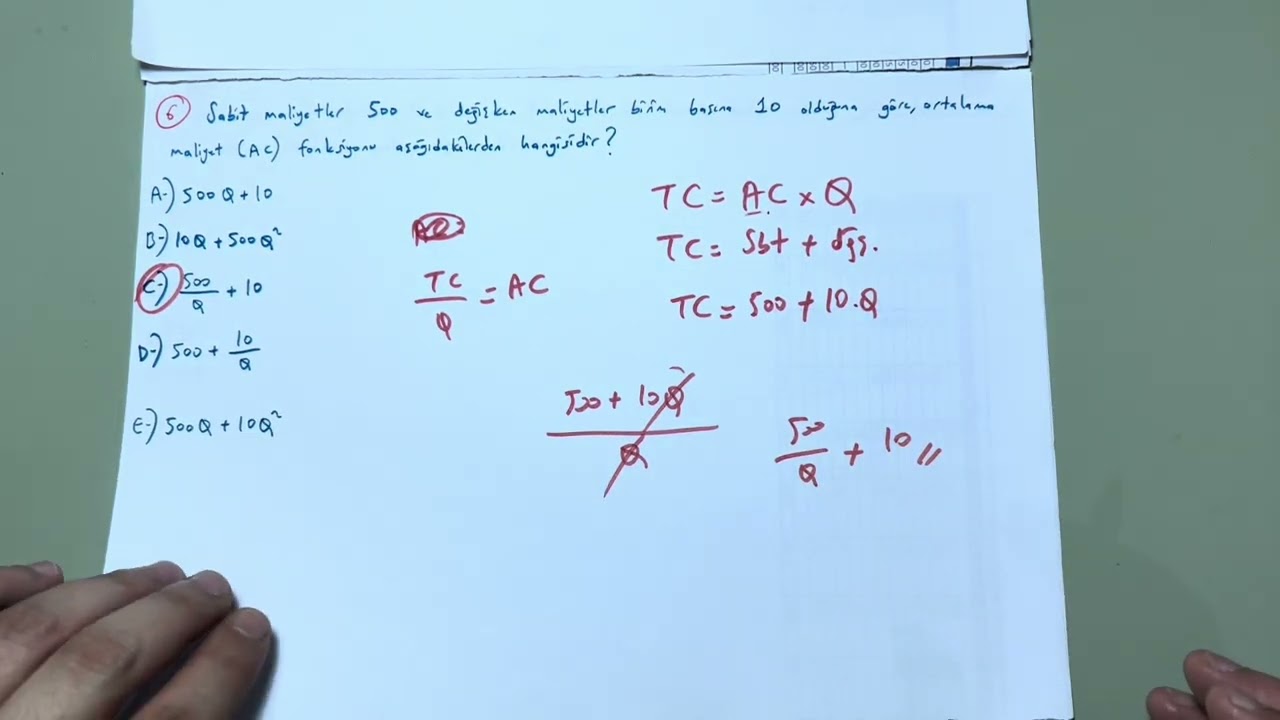 6 Sabit maliyetler 500 ve değişken maliyetler birim başına 10 olduğuna göre, ortalama
maliyet (AC) fonksiyonu aşağıdakilerden hangisidir?
A-) 500Q + 10
B-) 10Q + 500Q²
C-) 500/Q + 10
D-) 500 + 10/Q
E-) 500Q + 10Q²
TC/Q = AC
TC = AC x Q
TC = Sbt + dğş.
TC = 500 + 10.Q
500 + 10Q / Q
500/Q + 10 //